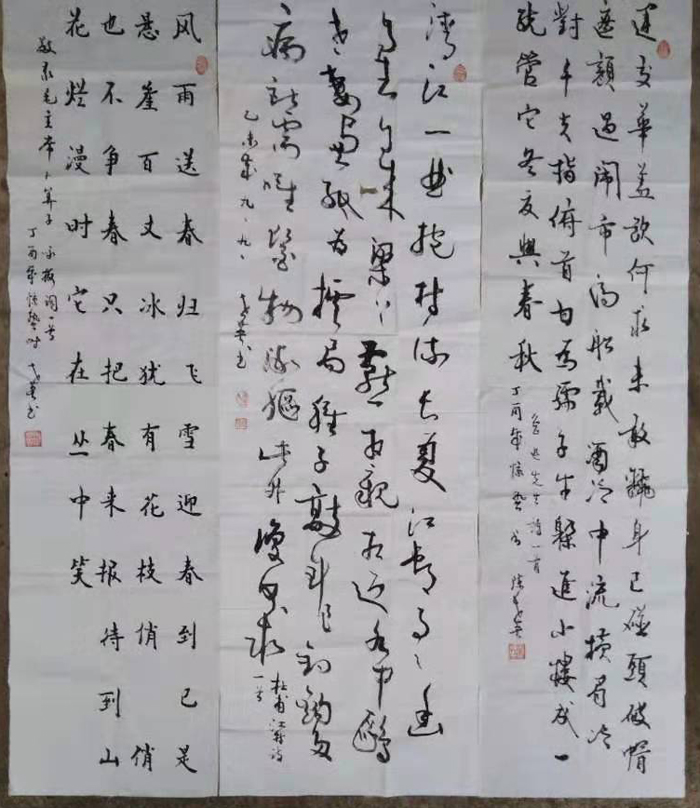 運交華蓋欲何求未敢翻身已碰頭破帽
遮顏過鬧市漏船載酒泛中流橫眉冷
對千夫指俯首甘為孺子牛躲進小樓成一
統管它冬夏與春秋
魯迅先生詩一首
丁酉年
清江一曲抱村流长夏江村事々幽
自去自来梁上燕相親相近水中鷗
老妻画紙为棋局稚子敲针作钓钩多
病所需唯药物微躯此外復何求
杜甫江村诗
一首
乙未年九、九、
风雨送春归飞雪迎春到已是
悬崖百丈冰犹有花枝俏俏
也不争春只把春来报待到山
花烂漫时它在丛中笑
敬录毛主席卜算子咏梅词一首
丁酉年